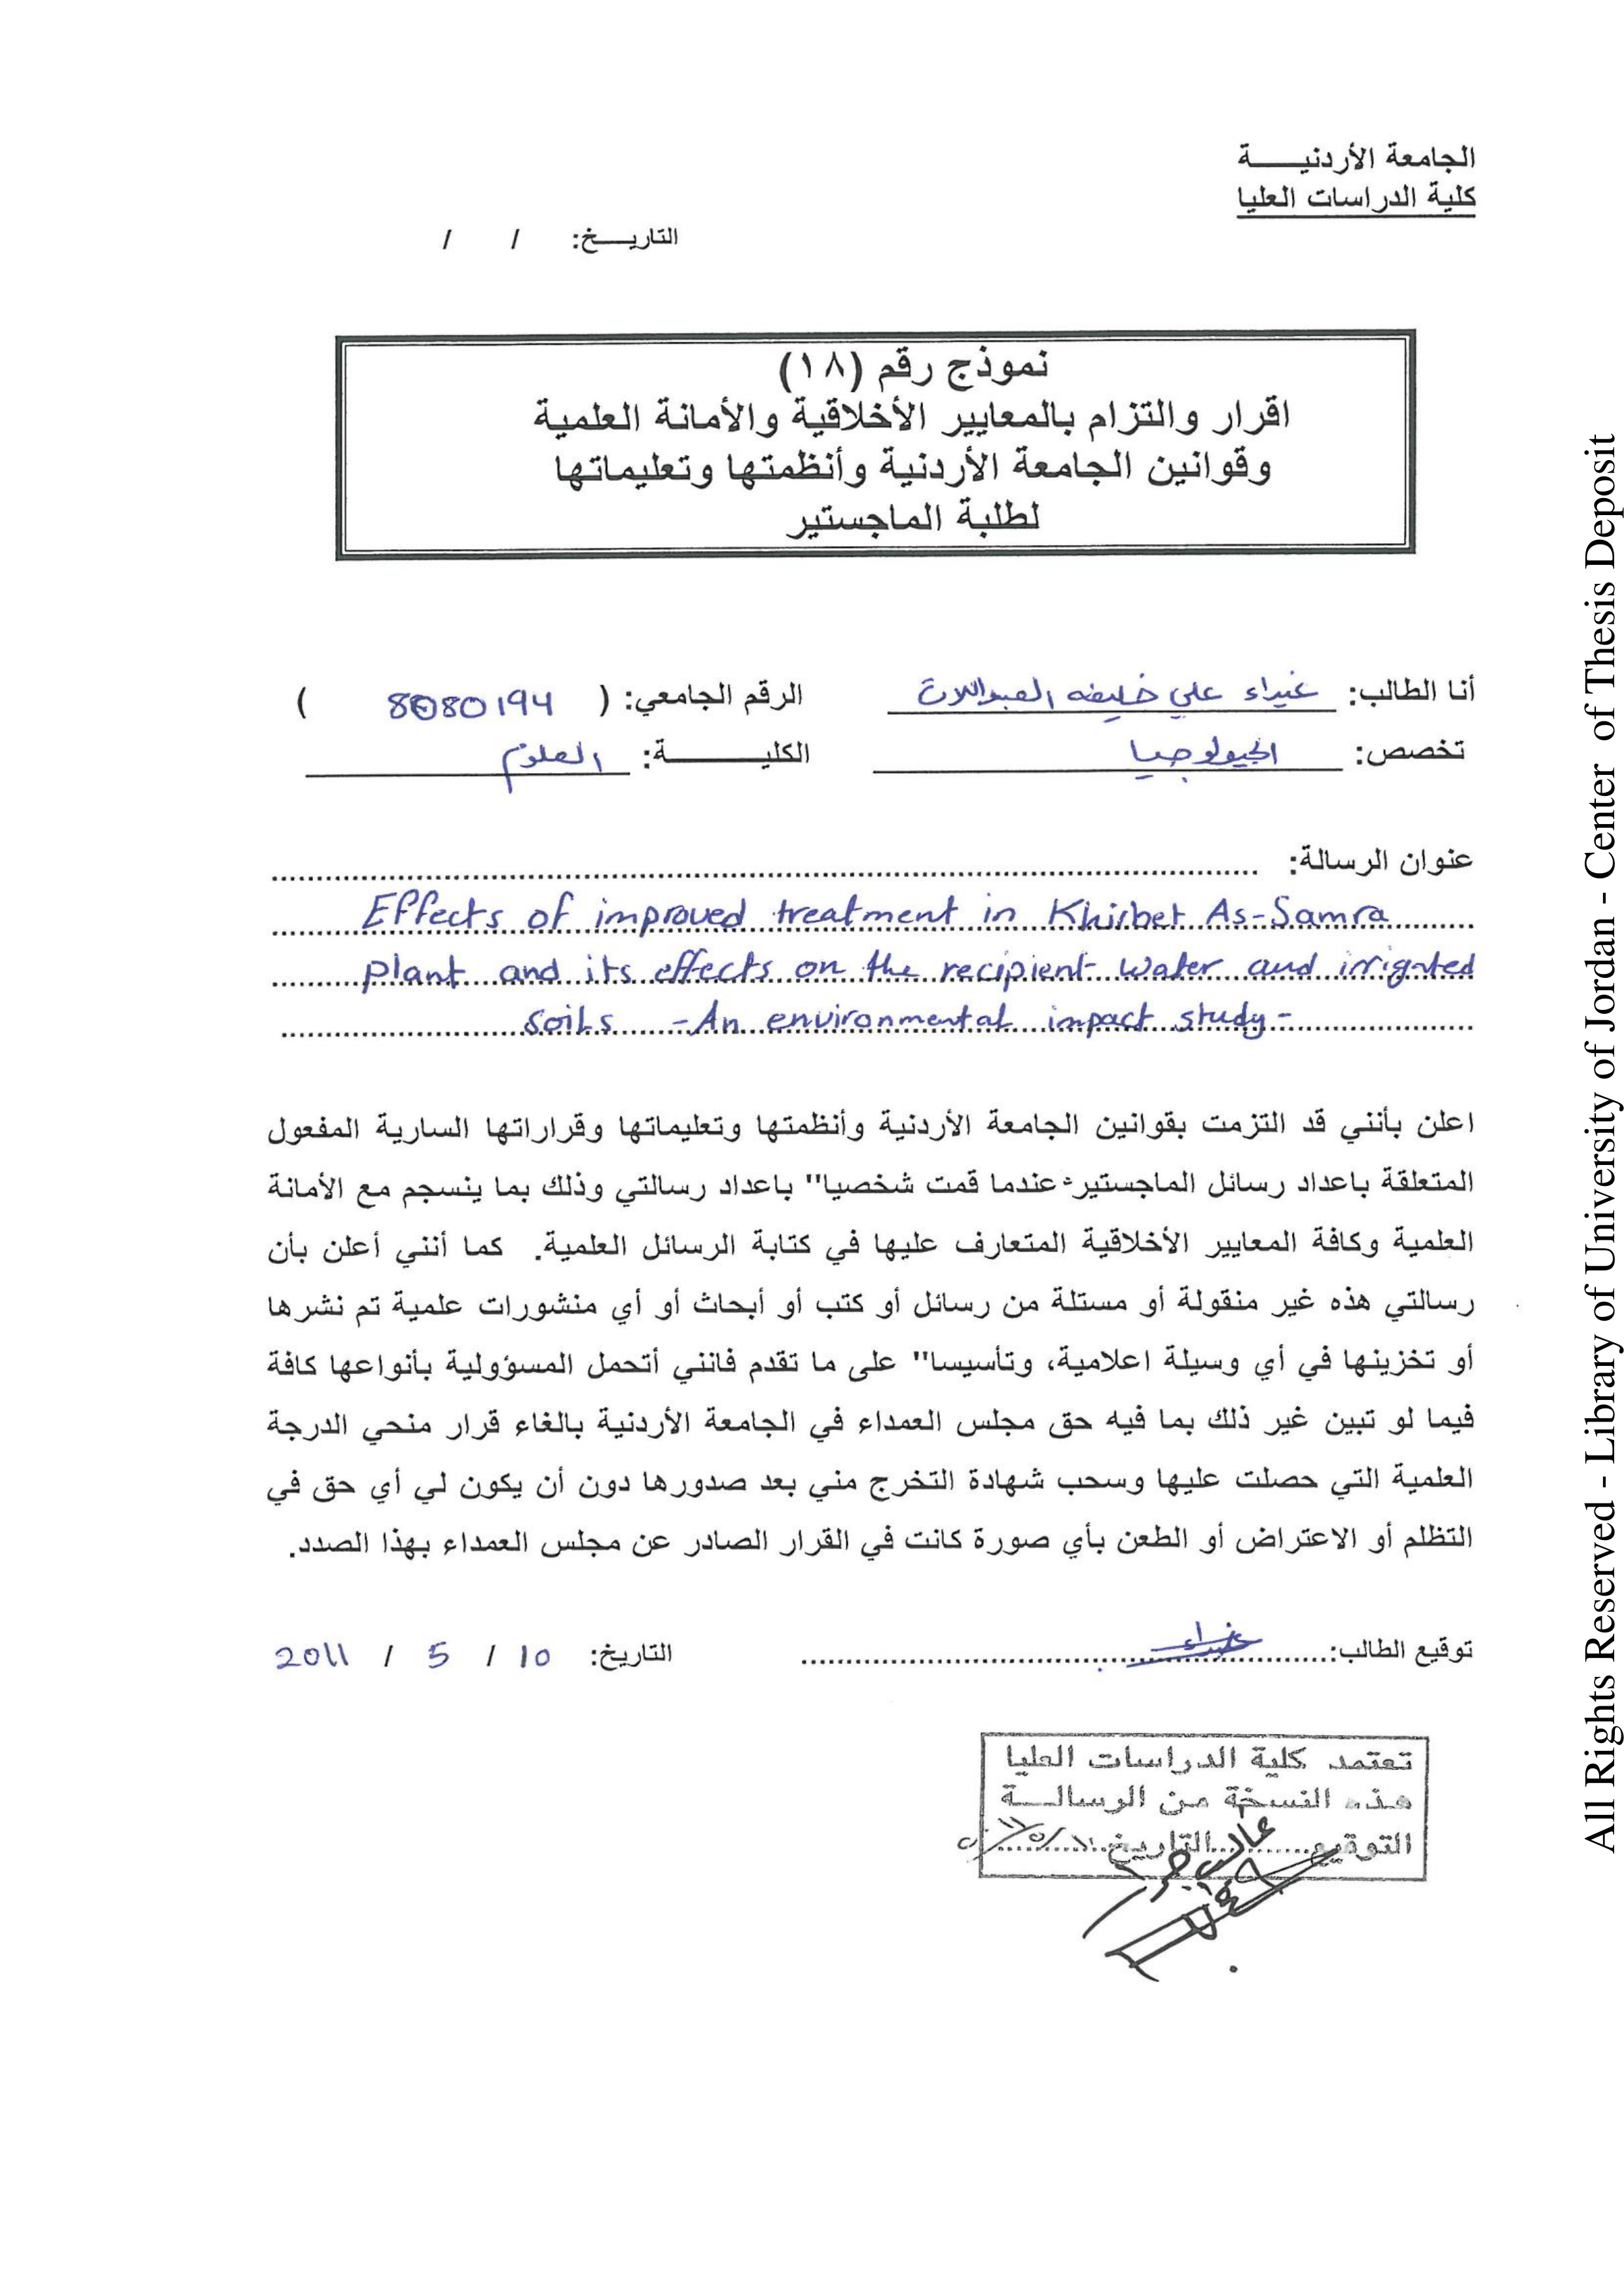 الجامعة الأردنيـــــة
كلية الدراسات العليا
التاريـــخ: / /
نموذج رقم (١٨)
اقرار والتزام بالمعايير الأخلاقية والأمانة العلمية
وقوانين الجامعة الأردنية وأنظمتها وتعليماتها
لطلبة الماجستير
أنا الطالب: غيداء علي خليفه العبداللات الرقم الجامعي: ( 8080194 )
تخصص: الجيولوجيا الكليـــــــة: العلوم
عنوان الرسالة:
Effects of improved treatment in Khirbet As-Samra
plant and its effects on the recipient water and irrigated
soils -An environmental impact study-
اعلن بأنني قد التزمت بقوانين الجامعة الأردنية وأنظمتها وتعليماتها وقراراتها السارية المفعول
المتعلقة باعداد رسائل الماجستير عندما قمت شخصيا" باعداد رسالتي وذلك بما ينسجم مع الأمانة
العلمية وكافة المعايير الأخلاقية المتعارف عليها في كتابة الرسائل العلمية. كما أنني أعلن بأن
رسالتي هذه غير منقولة أو مستلة من رسائل أو كتب أو أبحاث أو أي منشورات علمية تم نشرها
أو تخزينها في أي وسيلة اعلامية، وتأسيسا" على ما تقدم فانني أتحمل المسؤولية بأنواعها كافة
فيما لو تبين غير ذلك بما فيه حق مجلس العمداء في الجامعة الأردنية بالغاء قرار منحي الدرجة
العلمية التي حصلت عليها وسحب شهادة التخرج مني بعد صدورها دون أن يكون لي أي حق في
التظلم أو الاعتراض أو الطعن بأي صورة كانت في القرار الصادر عن مجلس العمداء بهذا الصدد.
توقيع الطالب: غيداء التاريخ: 10 / 5 / 2011
تعتمد كلية الدراسات العليا
هذه النسخة من الرسالـــة
التوقيع........التاريخ
All Rights Reserved - Library of University of Jordan - Center of Thesis Deposit